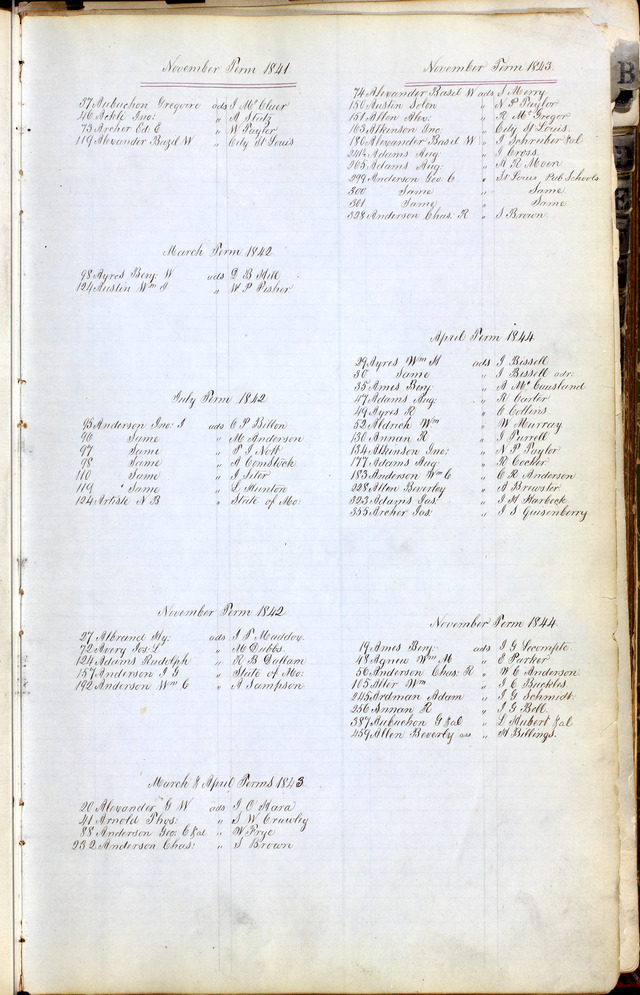 November Term 1841
37 Aubuchon Gregoire ads J Mc Cluer
46 Achli Jno: " A Stutz
73 Archer Ed: C " W Paylor
119 Alexander Bazil W " City St Louis
March Term 1842
98 Ayres Benj: W ads D B Hill
124 Austin Wm J " W P Fisher
July Term 1842
95 Anderson Jno: J ads C P Billon
96 Same " M Anderson
97 Same " P J Nott
98 Same " A Comstock
110 Same " J Iglor
119 Same " L Stunton
124 Artist N B " State of Mo:
November Term 1842
27 Albrand Hy: ads J P Maddox
72 Avery Jos: L " M Dubbs
124 Adams Rudolph " H B Callam
157 Anderson J G " State of Mo:
192 Anderson Wm C " A Sampson
March & April Terms 1843
20 Alexander G W ads J O Hara
41 Arnold Phys: " S W Crawley
88 Anderson Geo: C &al " W Frye
232 Anderson Chas: " S Brown
November Term 1843
74 Alexander Basil W ads J Merry
150 Austin Solon " N P Taylor
151 Allen Alex: " R Mc Gregor
163 Atkinson Jno: " City St Louis
180 Alexander Basil W " J Schreiber &al
241½ Adams Aug: " J Cross
265 Adams Aug: " A R Moen
299 Anderson Geo: C " St Louis Pub Schools
300 Same " Same
301 Same " Same
328 Anderson Chas: R " S Brown
April Term 1844
29 Ayres Wm H ads J Bissell
30 Same " J Bissell adr:
35 Ames Benj: " A Mc Causland
47 Adams Aug: " R Carter
49 Ayres R " C Collins
52 Aldrich Wm " W Murray
130 Annan R " J Purrell
134 Atkinson Jno: " N P Taylor
177 Adams Aug: " R Cocker
183 Anderson Wm C " C R Anderson
228 Allen Beverley " A Brewster
323 Adams Jas: " J H Harbeck
355 Archer Jos: " J S Quisenberry
November Term 1844
19 Ames Benj: ads J G Lecompte
48 Agnew Wm M " E Parker
56 Anderson Chas: R " W C Anderson
105 Alter Wm " J E Buckles
245 Ardman Adam " J G Schmidt
256 Annan R " J G Bell
387 Aubuchon G &al " L Hubert &al
459 Allen Beverly " H Billings